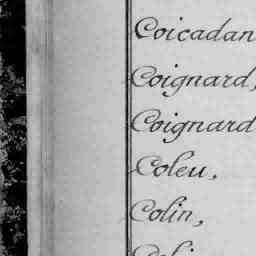 Coicadan
Coignard,
Coignard
Coleu,
Colin,